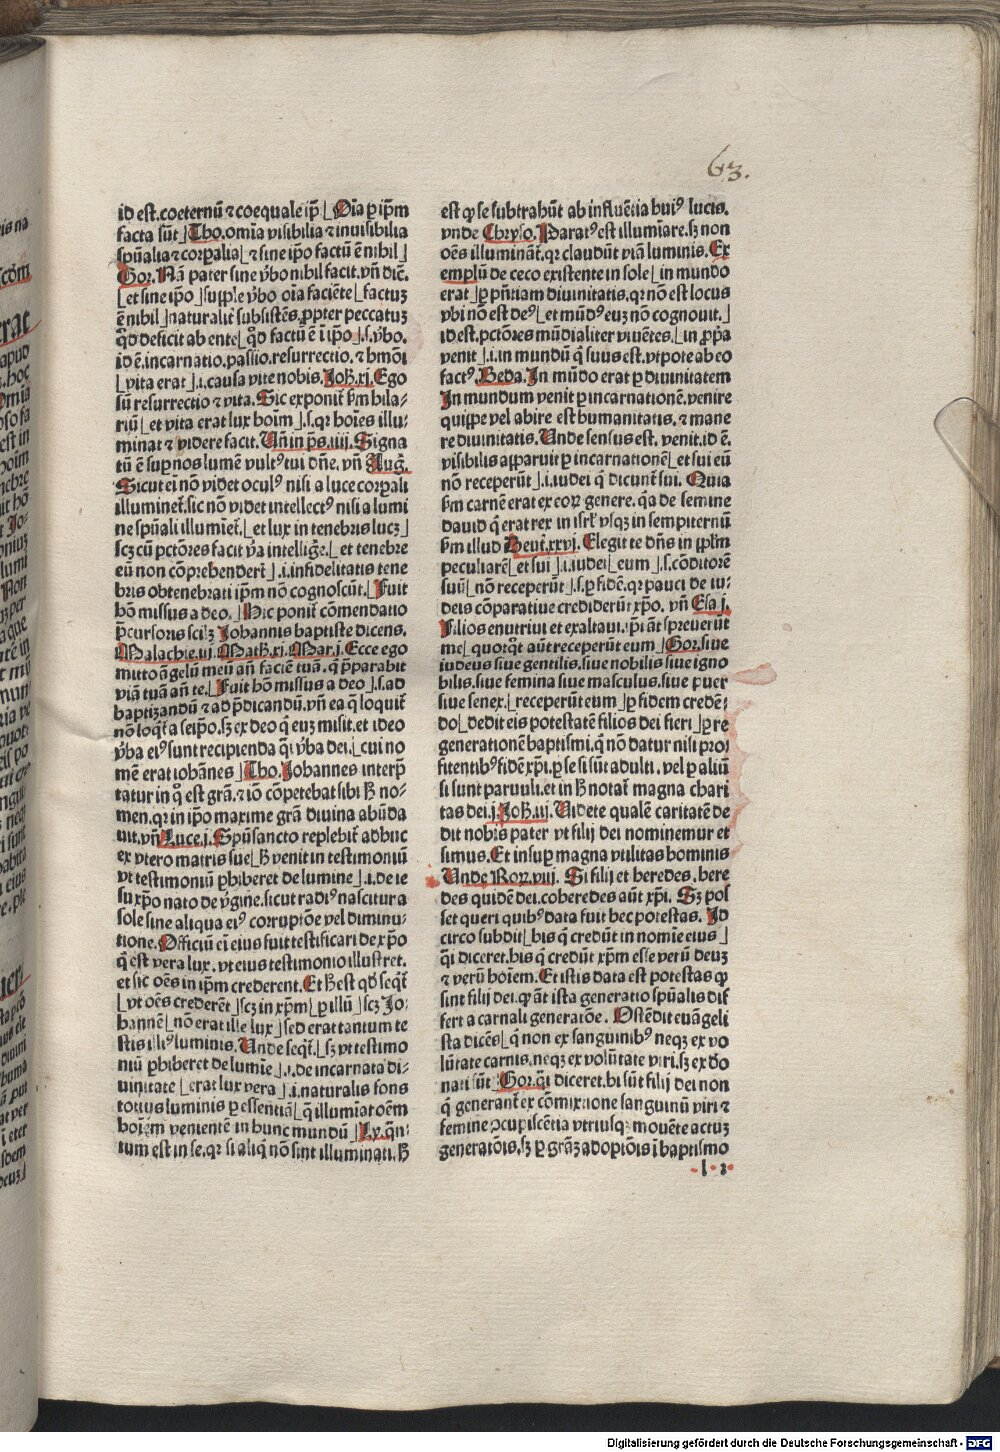 63.
id est.coeternū ⁊ coequale ip̄i ⌊Oīa ꝑ ip̄m
facta sūt⌋ Tho. omīa visibilia ⁊ inuisibilia
spūalia ⁊ corpalia⌊⁊ sine ip̄o factū ē nihil⌋
Gor. Nā pater sine ṽbo nihil facit. vñ dic̄.
⌊et sine ip̄o⌋ supple ṽbo oīa faciēte⌊factuꝫ
ē nihil⌋naturalit̄ subsistēs. ꝓpter peccatuꝫ
q̇d deficit ab ente⌊q̇d factū ē ī ip̄o⌋.s.ṽbo.
id ē.incarnatio.passio.resurrectio.⁊ hmōi
⌊vita erat⌋.i.causa vite nobis. Joh̄.xi. Ego
sū resurrectio ⁊ vita. Sic exponit̄ ẜm hila-
riū⌊et vita erat lux hoīm⌋.s.qꝛ hoīes illu-
minat ⁊ videre facit. Vñ in ps̄.iiij. Signa
tū ē suꝑ nos lumē vultꝰ tui dñe. vñ Aug̃.
Sicut ei nō videt oculꝰ nisi a luce corpali
illuminet̄.sic nō videt intellectꝰ nisi a lumi
ne spūali illumiet̄.⌊et lux in tenebris lucꝫ⌋
scꝫ cū pctōres facit ṽa intellig̃e.⌊et tenebre
eū non cōprehenderūt⌋.i.infidelitatis tene
bris obtenebrati ip̄m nō cognoscūt.⌊Fuit
hō missus a deo.⌋Hic ponit̄ cōmendatio
p̄cursoris scilꝫ Johannis baptiste dicens.
Malachie.iij. Math̄.xi. Mar.j. Ecce ego
mitto āgelū meū an̄ faciē tuā. q̇ p̄parabit
viā tuā an̄ te.⌊Fuit hō missus a deo⌋.s.ad
baptizandū ⁊ ad p̄dicandū.vñ ea q̄ loquit̄
nō loq̄t̄ a seipo.sꝫ ex deo q̇ euꝫ misit.et ideo
ṽba eiꝰ sunt recipienda q̇i ṽba dei.⌊cui no
mē erat iohānes⌋Tho. Johannes interp̄
tatur in q̇ est grā.⁊ iō cōpetebat sibi ħ no-
men.qꝛ in ip̄o maxime grā diuina abūda
uit.vñ Luce.j. Spūsancto replebit̄ adhuc
ex vtero matris sue⌊ħ venit in testimoniū
vt testimoniū ꝑhiberet de lumine⌋.i.de ie
su xp̄o nato de v̄gine.sicut radiꝰ nascitur a
sole sine aliqua eiꝰ corruptōe vel diminu-
tione. Officiū ei eius fuit testificari de xp̄o
q̇ est vera lux.vt eius testimonio illustret.
et sic oēs in ip̄m crederent. Et ħ est qd̄ seq̄t̄
⌊vt oēs crederēt⌋scꝫ in xp̄m⌊ꝑ illū⌋scꝫ Jo-
hannē⌊nō erat ille lux⌋sed erat tantum te
stis illiꝰ luminis. Vnde seq̄t̄.⌊sꝫ vt testimo
niū ꝑhiberet de lumie⌋.i.de incarnata di-
uinitate⌊erat lux vera⌋.i.naturalis fons
totius luminis ꝑ essentiā⌊q̄ illumīat oēm
hoīem venientē in hunc mundū⌋Ly.q̄n-
tum est in se.qꝛ si aliq̇ nō sint illuminati.ħ
est ꝙ se subtrahūt ab influētia huiꝰ lucis.
vnde Chryso. Paratꝰ est illumīare.sꝫ non
oēs illuminat̄.qꝛ claudūt viā luminis. Ex
emplū de ceco existente in sole⌊in mundo
erat⌋ꝑ pñtiam diuinitatis.qꝛ nō est locus
vbi nō est deꝰ⌊et mūdꝰ euꝫ nō cognouit.⌋
id est.pctōres mūdialiter viuētes.⌊in ꝓpa
venit⌋.i.in mundū q̇ suus est.vtpote ab eo
factꝰ. Beda. In mūdo erat ꝑ diuinitatem
In mundum venit ꝑ incarnationē.venire
quippe vel abire est humanitatis.⁊ mane
re diuinitatis. Vnde sensus est.venit.id ē.
visibilis apparuit ꝑ incarnationē⌊et sui eū
nō receperūt⌋.i.iudei q̇ dicunt̄ sui. Quia
ẜm carnē erat ex eoꝝ genere.qa de semine
dauid q̇ erat rex in isrl̄ vsqꝫ in sempiternū
ẜm illud Deut̄.xxvj. Elegit te dñs in pp̄lm
peculiarē⌊et sui⌋.i.iudei⌊eum⌋.s.cōditorē
suū⌊nō receperūt⌋.s.ꝑ fidē.qꝛ pauci de iu-
deis cōparatiue crediderūt xp̄o. vñ Esa.j.
Filios enutriui et exaltaui.ip̄i āt spreuerūt
me⌊quotq̇t aūt receperūt eum⌋Gor.siue
iudeus siue gentilis.siue nobilis siue igno
bilis.siue femina siue masculus.siue puer
siue senex.⌊receperūt eum⌋ꝑ fidem credē-
do⌊dedit eis potestatē filios dei fieri⌋ꝑ re
generationē baptismi.q̄ nō datur nisi prof
fitentibꝰ fidē xp̄i.ꝑ se si sūt adulti.vel ꝑ aliū
si sunt paruuli.et in ħ notat̄ magna chari
tas dei.j.Joh̄.iij. Videte qualē caritatē de
dit nobis pater vt filij dei nominemur et
simus. Et insuꝑ magna vtilitas hominis
Vnde Roꝝ.viij. Si filij et heredes.here
des quidē dei.coheredes aūt xp̄i. Sꝫ pos
set queri quibꝰ data fuit hec potestas. Id
circo subdit⌊his q̇ credūt in nomīe eius⌋
q̇i diceret.his q̇ credūt xp̄m esse verū deuꝫ
⁊ verū hoīem. Et istis data est potestas ꝙ
sint filij dei.ꝙ āt ista generatio spūalis dif
fert a carnali generatōe. Ostēdit euāgeli
sta dicēs⌊q̇ non ex sanguinibꝰ neqꝫ ex vo
lūtate carnis.neqꝫ ex volūtate viri.sꝫ ex dō
nati sūt⌋Gor.q̇i diceret.hi sūt filij dei non
q̇ generant̄ ex cōmixtione sanguinū viri ⁊
femine ↄcupiscētia vtriusqꝫ mouēte actuꝫ
generatōis.sꝫ ꝑ grāꝫ adoptōis ī baptismo
l 2
Digitalisierung gefördert durch die Deutsche Forschungsgemeinschaft - DFG